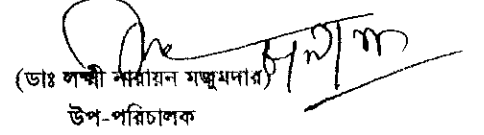 (ডাঃ লক্ষ্মী নারায়ন মজুমদার)
উপ-পরিচালক